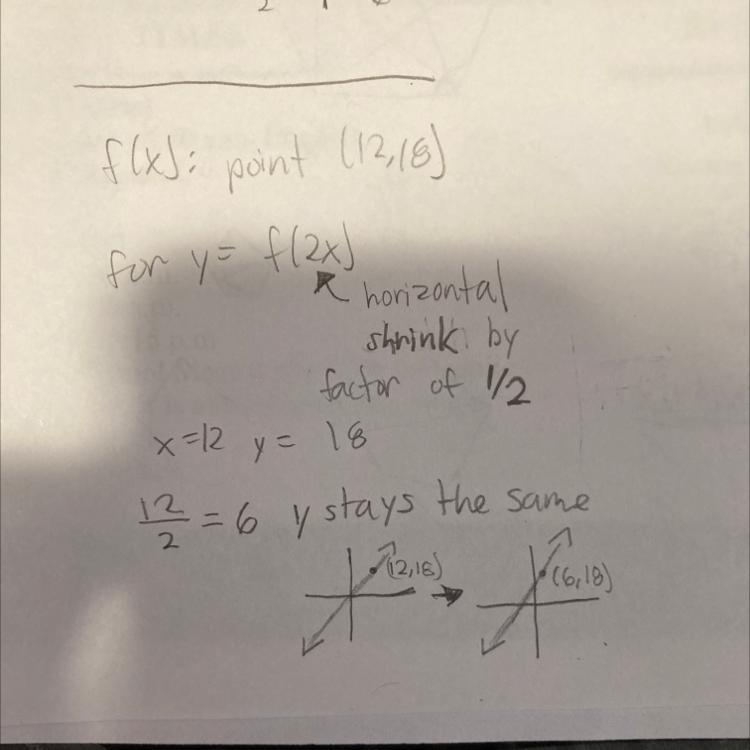 f(x): point (12,18)
for y= f(2x)
horizontal
shrink by
factor of 1/2
x=12 y= 18
12/2 = 6 y stays the same
(12,18)
(6,18)